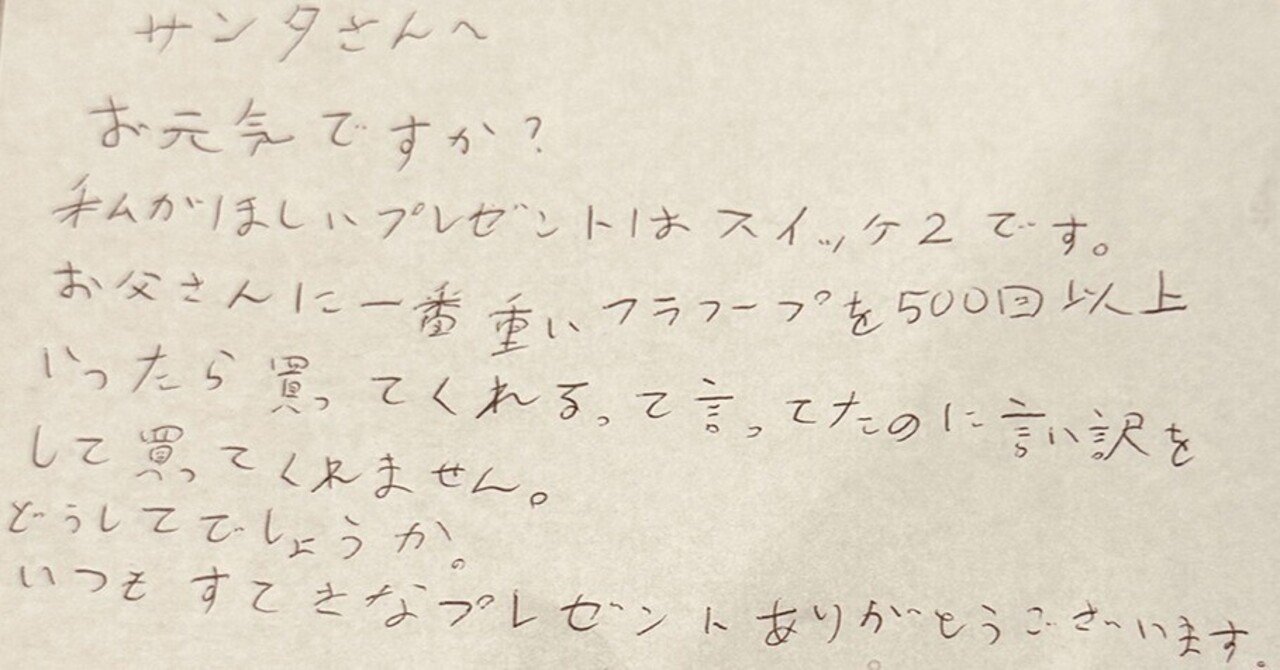 サンタさんへ
お元気ですか?
私がほしいプレゼントはスイッケ2です。
お父さんに一番重いフラフープを500回以上
いったら買ってくれるって言ってたのに言い訳を
して買ってくれません。
どうしてでしょうか。
いつもすてきなプレゼントありがとうございます。